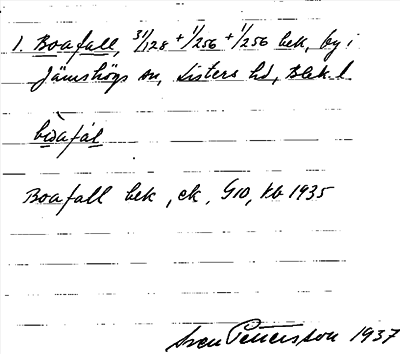 1. Boafall, 31/128 + 1/256 + 1/256 bek, by i
Jämshögs sn, Listers hd, Blek. l.
bòafál
Boafall bek, ek. G10, kb 1935
Sven Pettersson 1937